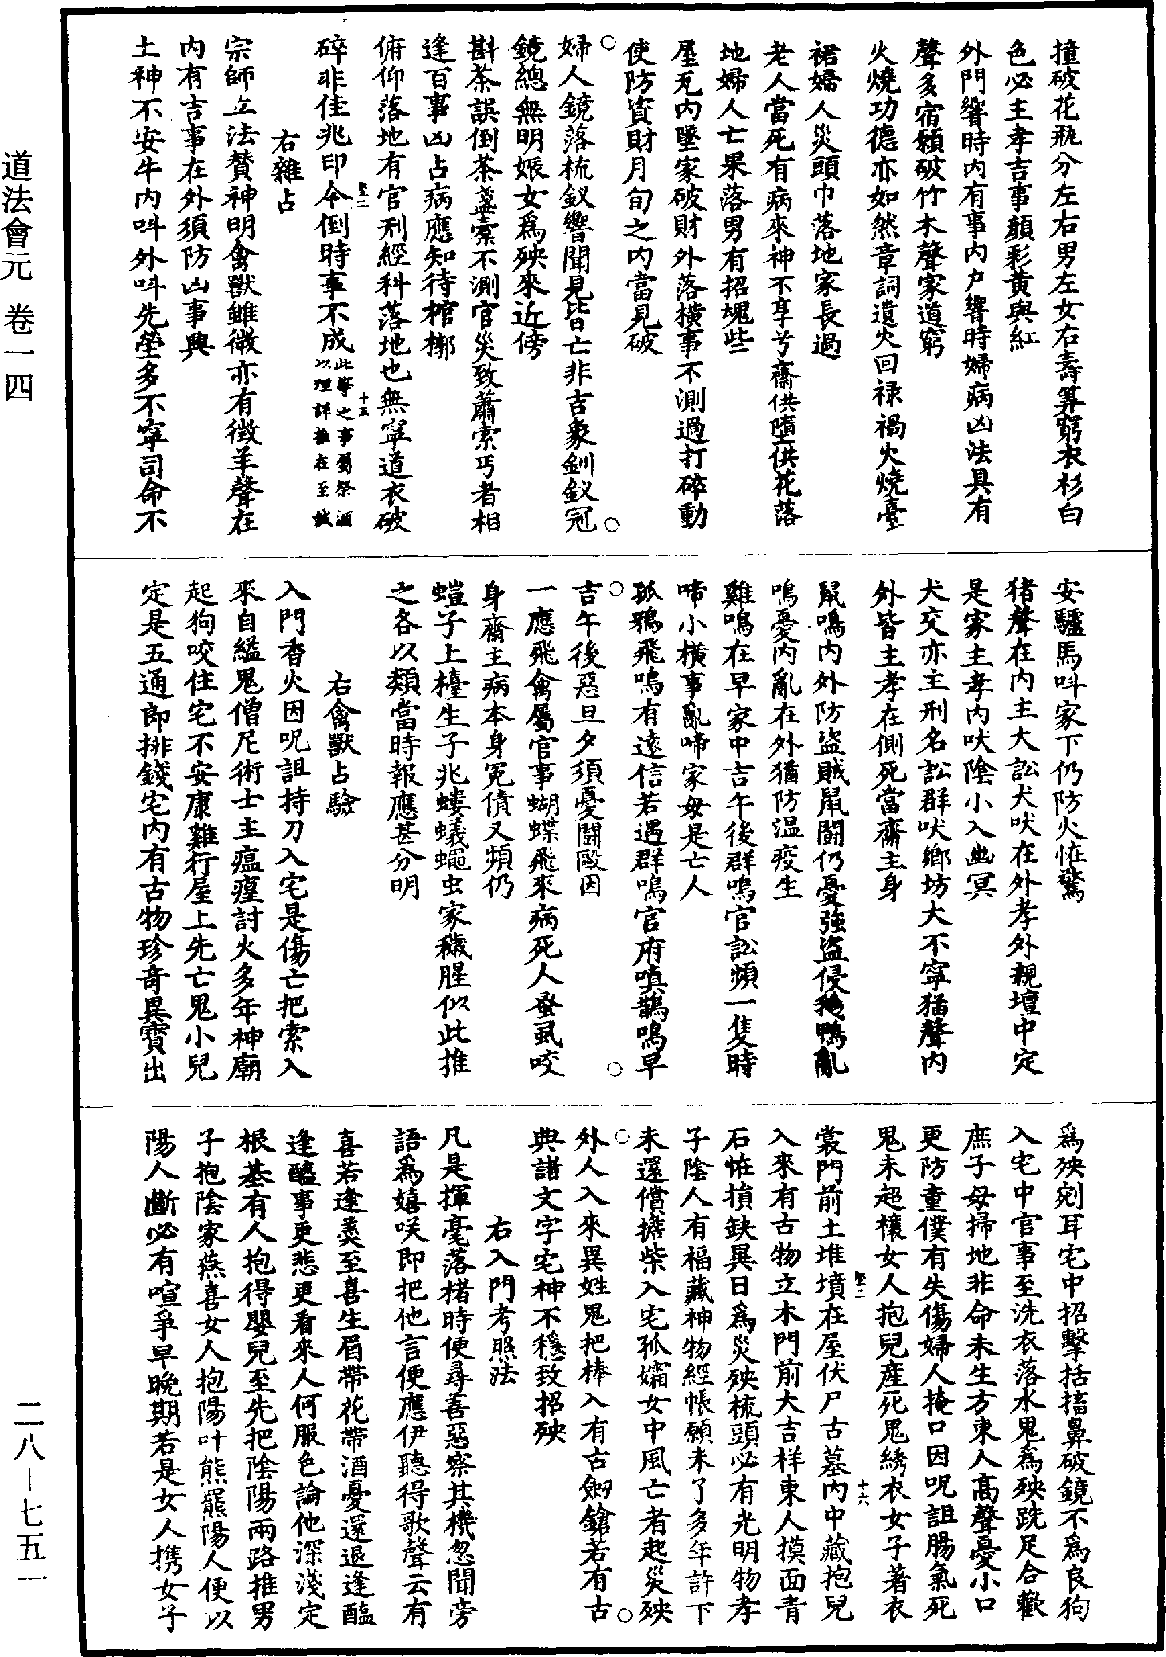 道法會元 卷一四
二八—七五一
撞破花瓶分左右男左女右壽算窮衣衫白
色必主孝吉事顏彩黄與紅
外門響時内有事内户響時婦病凶法具有
聲多宿願破竹木聲家道窮
火燒功德亦如然章詞遺火回禄禍火燒臺
裙婦人災頭巾落地家長過
老人當死有病來神不享兮齋供墮供花落
地婦人亡果落男有招塊些
屋瓦内墜家破財外落横事不測過打碎動
使防資財月旬之内當見破
婦人鏡落梳釵響聞見皆亡非吉象釧釵冠
鏡總無明娠女爲殃來近傍
斟茶誤倒茶盞橐不測官災致蕭索丐者相
逢百事凶占病應知待棺槨
俯仰落地有官刑經科落地也無寧道衣破
碎非佳兆印令倒時事不成此等之事蜀祭酒以理詳推在至誠
右雜占
宗師立法贊神明禽獸雖微亦有徵羊聲在
内有吉事在外須防凶事興
土神不安牛内呌外呌先塋多不寧司命不
安驢馬呌家下仍防火怪驚
猪聲在内主大訟犬吠在外孝外親壇中定
是家主孝内吠陰小入幽冥
犬交亦主刑名訟群吠鄉坊大不寧猫聲内
外皆主孝在側死當齋主身
鼠鳴内外防盜賊鼠鬪仍憂強盜侵鵝鴨亂
鳴憂内亂在外猶防温疫生
雞鳴在早家中吉午後群鳴官訟頻一隻時
啼小横事亂啼家母是亡人
孤鴉飛鳴有遠信若遇群鳴官府嗔鵲鳴早
吉午後惡旦夕須憂鬪毆因
一應飛禽屬官事蝴蝶飛來病死人蚤虱咬
身齋主病本身冤債又頻仍
螘子上檯生子兆螻蟻蠅虫家穢腥似此推
之各以類當時報應甚分明
右禽獸占驗
入門香火因呪詛持刀入宅是傷亡把索入
來自縊鬼僧尼術士主瘟㾮討火多年神廟
起狗咬住宅不安康雞行屋上先亡鬼小兒
定是五通郎排錢宅内有古物珍奇異寶出
爲殃剜耳宅中招擊括搐鼻破鏡不爲良狗
入宅中官事至洗衣落水鬼爲殃跣足合歡
庶子母掃地非命未生方東人高聲憂小口
更防童僕有失傷婦人掩口因呪詛腸氣死
鬼未超禳女人抱兒産死鬼綉衣女子著衣
裳門前土堆墳在屋伏尸古墓内中藏抱兒
入來有古物立木門前大吉祥東人摸面青
石怪損缺異日爲災殃梳頭必有光明物孝
子陰人有福藏神物經帳願未了多年許下
未還償擔柴入宅孤孀女中風亡者起災殃
外人入來異姓鬼把棒入有古劒鎗若有古
典諸文字宅神不穩致招殃
右入門考照法
凡是揮毫落楮時便尋善惡察其機忽聞旁
語爲嬉咲即把他言便應伊聽得歌聲云有
喜若逢羹至喜生眉帶花帶酒憂還退逢醢
逢醯事更悲更看來人何服色論他深淺定
根基有人抱得嬰兒至先把陰陽兩路推男
子抱陰家燕喜女人抱陽叶熊羆陽人便以
陽人斷必有喧爭早晚期若是女人携女子